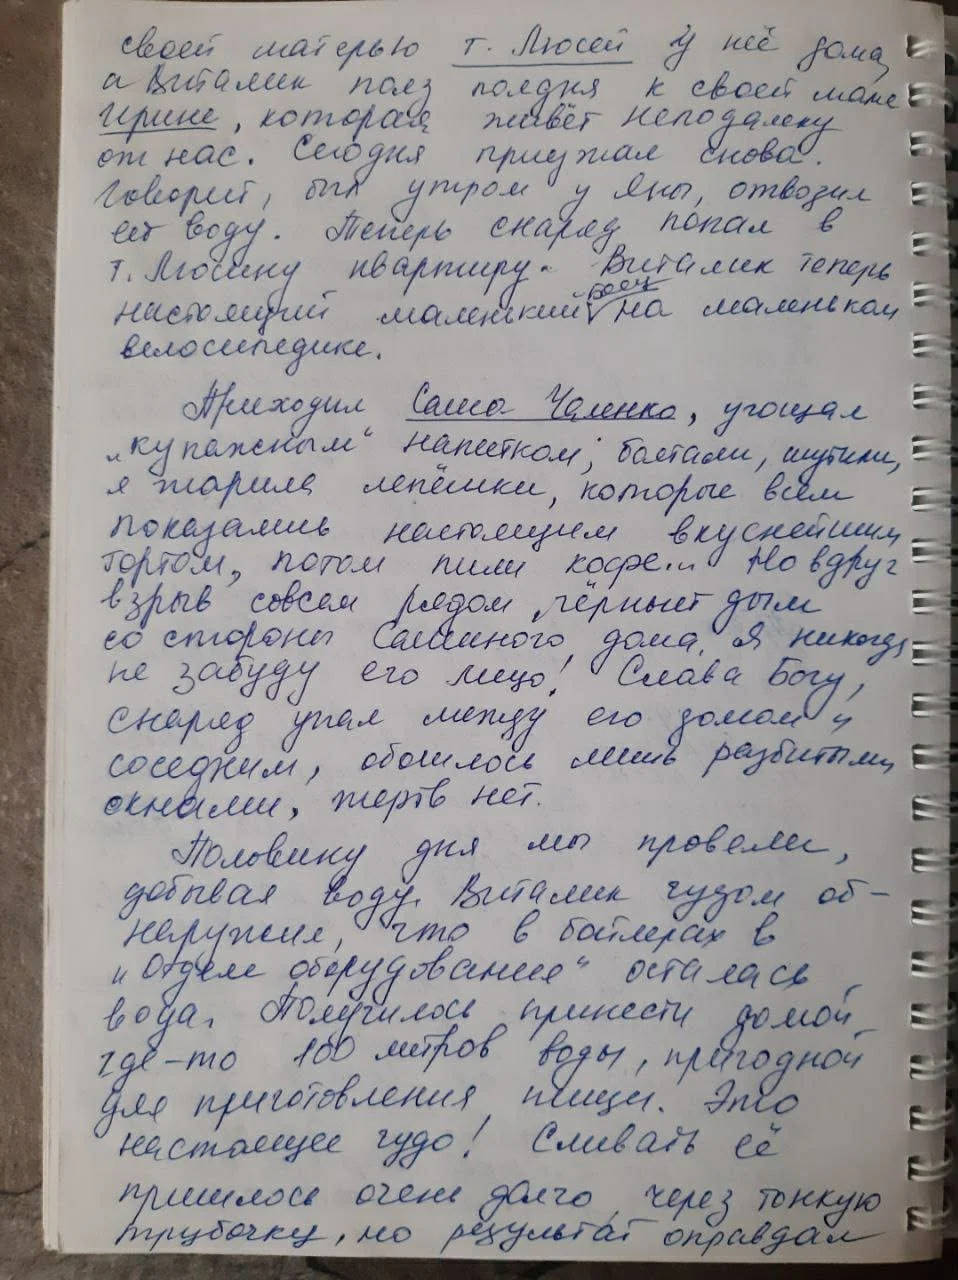 своей матерью т. Люсей у неё дома,
а Виталик полз полдня к своей маме
Ирине, которая живёт неподалёку
от нас. Сегодня приезжал снова.
Говорит, был утром у Яны, отвозил
ей воду. Теперь снаряд попал в
т. Люсину квартиру. Виталик теперь
настоящий маленький боец на маленьком
велосипедике.
Приходил Саша Чаленко, угощал
„купажным“ напитком, болтали, шутили,
я жарила лепёшки, которые всем
показались настоящим вкуснейшим
тортом, потом пили кофе... Но вдруг
взрыв совсем рядом, чёрный дым
со стороны Сашиного дома. Я никогда
не забуду его лицо! Слава Богу,
снаряд упал между его домом и
соседним, обошлось лишь разбитыми
окнами, жертв нет.
Половину дня мы провели,
добывая воду. Виталик чудом об-
наружил, что в бойлерах в
„Отделе оборудования“ осталась
вода. Получилось принести домой
где-то 100 литров воды, пригодной
для приготовления пищи. Это
настоящее чудо! Сливать её
пришлось очень долго через тонкую
трубочку, но результат оправдал